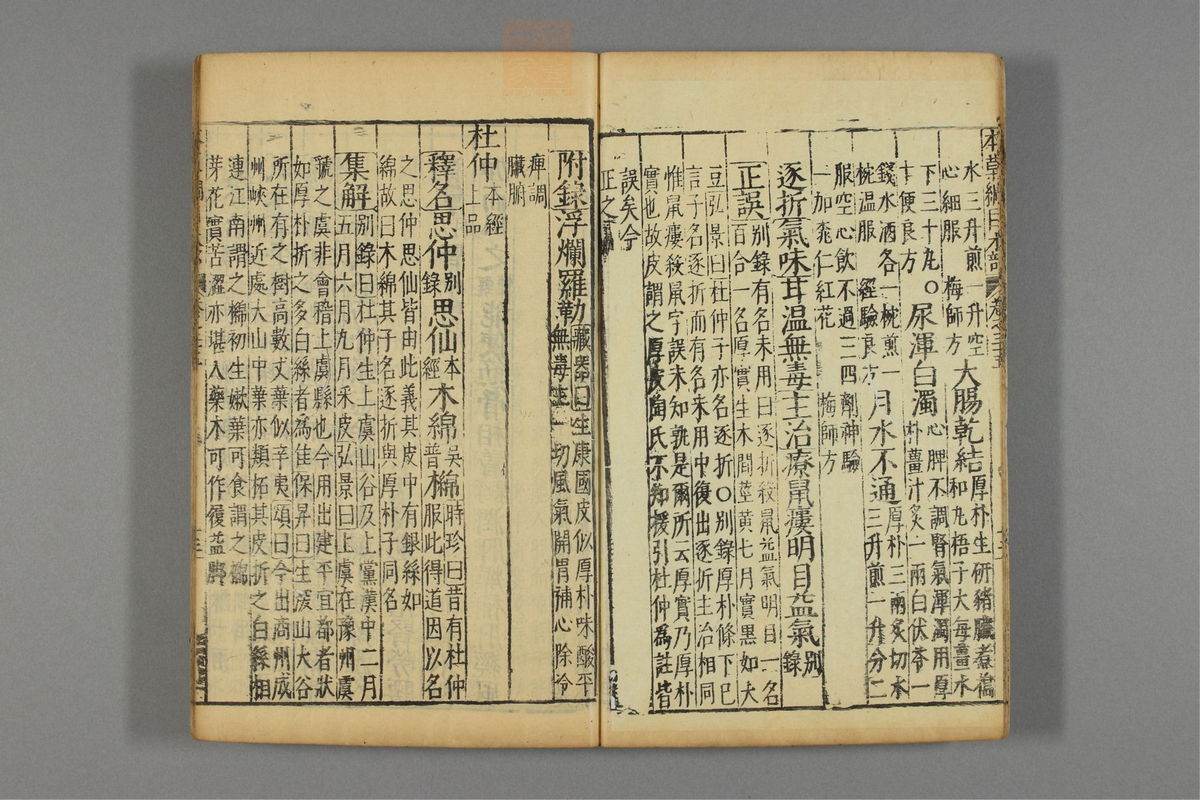 本草綱目木部
水三升煎一升空
心細服 梅師方
大腸乾結厚朴生研豬臟煮擣
和丸梧子大每薑水
下三十丸○尿渾白濁心脾不調腎氣渾濁用厚
朴薑汁炙一兩白伏苓一
錢水酒各一椀煎一
椀温服 經驗良方
月水不通厚朴三兩炙切水
三升煎一升分二
服空心飲不過三四劑神驗
一加桃仁紅花 梅師方
逐折氣味甘温無毒主治療鼠瘻明目益氣別錄
正誤別錄有名未用曰逐折殺鼠益氣明目一名
百合一名厚實生木間莖黃七月實黑如大
豆弘景曰杜仲子亦名逐折○別錄厚朴條下已
言子名逐折而有名未用中復出逐折主治相同
惟鼠瘻殺鼠字誤未知孰是爾所云厚實乃厚朴
實也故皮謂之厚皮陶氏不知援引杜仲為註皆
誤矣今
正之
附錄浮爛羅勒藏器曰生康國皮似厚朴味酸平
無毒主一切風氣開胃補心除冷
痺調
臟腑
杜仲本經
上品
釋名思仲別錄思仙本經木綿吳普檰時珍曰昔有杜仲
服此得道因以名
之思仲思仙皆由此義其皮中有銀絲如
綿故曰木綿其子名逐折與厚朴子同名
集解別錄曰杜仲生上虞山谷及上黨漢中二月
五月六月九月采皮弘景曰上虞在豫州虞
虢之虞非會稽上虞縣也今用出建平宜都者狀
如厚朴折之多白絲者為佳保昇曰生深山大谷
所在有之樹高數丈葉似辛夷頌曰今出商州成
州峽州近處大山中葉亦類柘其皮折之白絲相
連江南謂之檰初生嫩葉可食謂之檰
芽花實苦澀亦堪入藥木可作履益腳